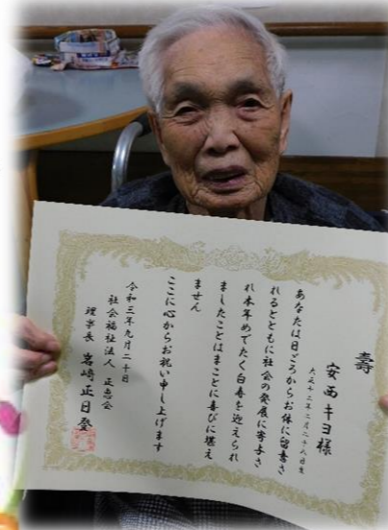 壽
安西キヨ様
大正十二年二月二十八日生
あなたは日ごろからお体に留意さ
れるとともに社会の発展に寄与さ
れ本年めでたく白寿を迎えられ
ましたことはまことに喜びに堪え
ません
ここに心からお祝い申し上げます
令和三年九月二十日
社会福祉法人 正恵会
理事長 岩崎正日登